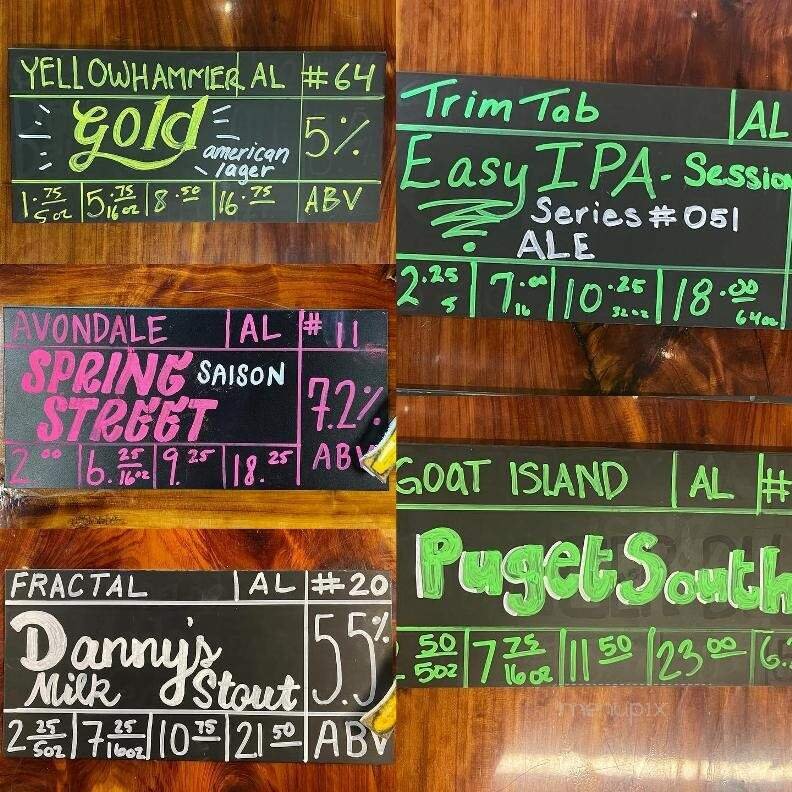 YELLOWHAMMER AL #64
Gold
american
lager
5%
1.75 5oz 5.75 16oz 8.50 16.75 ABV
AVONDALE AL #11
SPRING SAISON
STREET
7.2%
2.00 6.25 16oz 9.25 18.25 ABV
FRACTAL AL #20
Danny's
Milk Stout
5.5%
2 25 5oz 7 25 16oz 10 75 21 50 ABV
Trim Tab AL
Easy IPA - Session
Series #051
ALE
2.25 5 7.00 16 10.25 32oz 18.00 64oz
GOAT ISLAND AL #
Puget South
50 5oz 7 75 16oz 11 50 23 00 6.
menupix